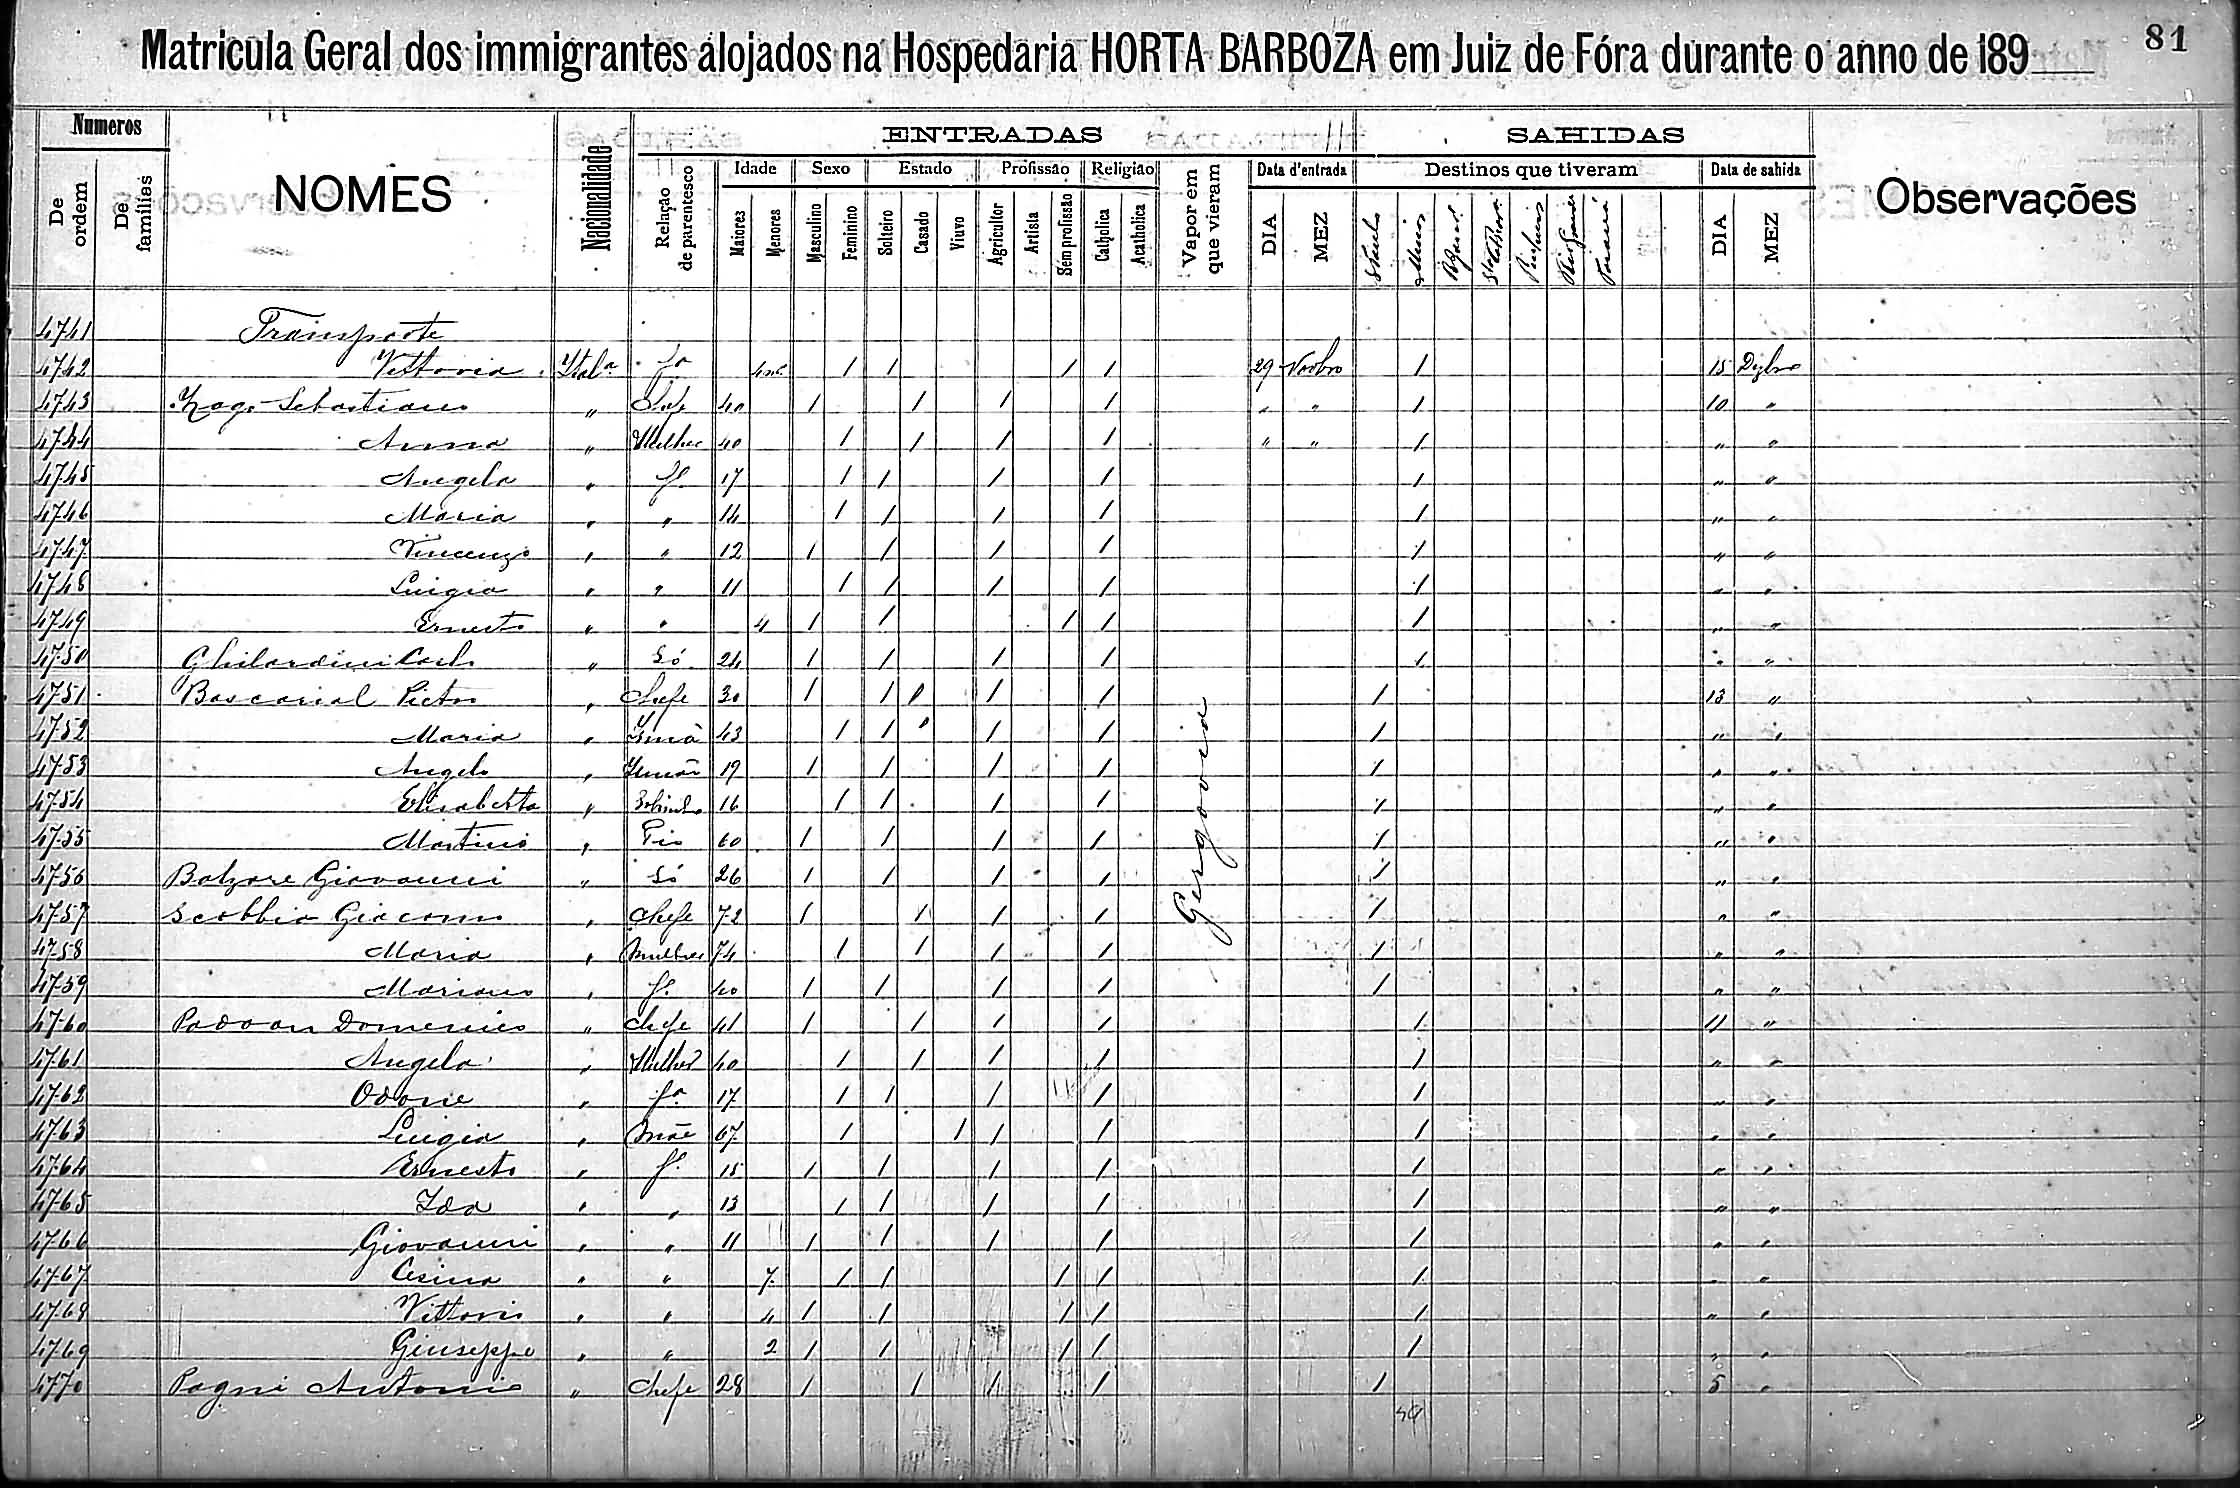 81
Matricula Geral dos immigrantes alojados na Hospedaria HORTA BARBOZA em Juiz de Fóra durante o anno de 189
Numeros ENTRADAS SAHIDAS
De ordem De familias NOMES Nacionalidade Relação de parentesco Idade Sexo Estado Profissão Religião Vapor em que vieram Data d'entrada Destinos que tiveram Data de sahida Observações
Maiores Menores Masculino Feminino Solteiro Casado Viuvo Agricultor Artista Sem profissão Catholica Acatholica DIA MEZ S Paulo Minas DIA MEZ
4741 Transporte
4742 Vittoria Ital.a fa 1 1 1 1 29 Novbro 1 15 Dezbro
4743 Zago Sebastiano " Chefe 40 1 1 1 1 " " 1 10 "
4744 Anna " Mulher 40 1 1 1 1 " " 1 " "
4745 Angela " fo 17 1 1 1 1 1 " "
4746 Maria " " 14 1 1 1 1 1 " "
4747 Vincenzo " " 12 1 1 1 1 1 " "
4748 Luigia " " 11 1 1 1 1 1 " "
4749 Ernesto " " 4 1 1 1 1 1 " "
4750 Ghilardini Carlo " Só 24 1 1 1 1 1 " "
4751 Boscarial Pietro " Chefe 30 1 1 1 1 1 13 "
4752 Maria " Irmã 43 1 1 1 1 1 " "
4753 Angelo " Irmão 19 1 1 1 1 1 " "
4754 Elisabetta " Sobrinha 16 1 1 1 1 1 " "
4755 Martino " Tio 60 1 1 1 1 1 " "
4756 Balzare Giovanni " Só 26 1 1 1 1 1 " "
4757 Scobbio Giacomo " Chefe 72 1 1 1 1 1 " "
4758 Maria " Mulher 74 1 1 1 1 1 " "
4759 Mariano " fo 40 1 1 1 1 1 " "
4760 Padoan Domenico " Chefe 41 1 1 1 1 1 11 "
4761 Angela " Mulher 40 1 1 1 1 1 " "
4762 Odone " fa 17 1 1 1 1 1 " "
4763 Luigia " Mãe 67 1 1 1 1 1 " "
4764 Ernesto " fo 15 1 1 1 1 1 " "
4765 Ida " " 13 1 1 1 1 1 " "
4766 Giovanni " " 11 1 1 1 1 1 " "
4767 Cesira " " 7 1 1 1 1 1 " "
4768 Vittorio " " 4 1 1 1 1 1 " "
4769 Giuseppe " " 2 1 1 1 1 1 " "
4770 Pagni Antonio " Chefe 28 1 1 1 1 1 5 "
Gergovia